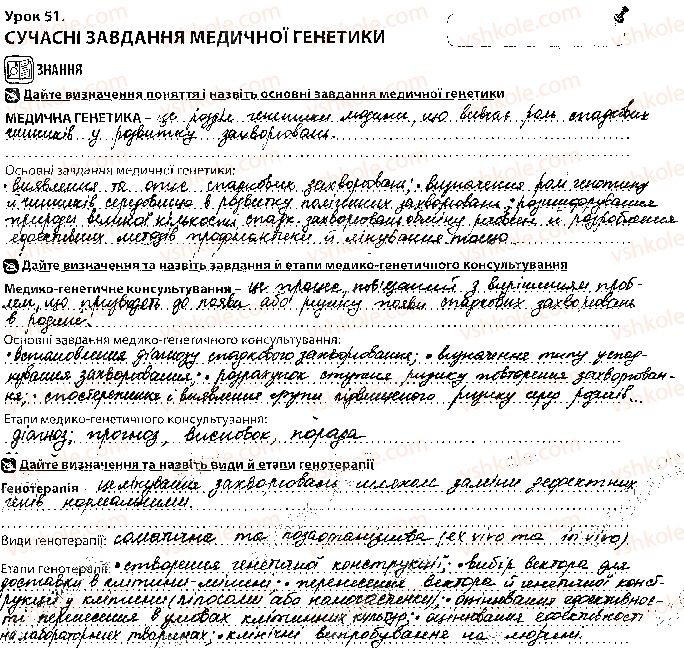 Урок 51.
СУЧАСНІ ЗАВДАННЯ МЕДИЧНОЇ ГЕНЕТИКИ
ЗНАННЯ
Дайте визначення поняття і назвіть основні завдання медичної генетики
МЕДИЧНА ГЕНЕТИКА – це розділ генетики людини, що вивчає роль спадкових
чинників у розвитку захворювань.
Основні завдання медичної генетики:
• виявлення та опис спадкових захворювань; • визначення ролі генотипу
й чинників середовища в розвитку захворювань; • розшифрування
природи великої кількості спадк. захворювань обміну речовин й розроблення
ефективних методів профілактики й лікування тощо
Дайте визначення та назвіть завдання й етапи медико-генетичного консультування
Медико-генетичне консультування – це процес, пов'язаний з вирішенням проб-
лем, що призводять до появи або ризику появи спадкових захворювань
в родині.
Основні завдання медико-генетичного консультування:
• встановлення діагнозу спадкового захворювання; • визначення типу успад-
кування захворювання; • розрахунок ступеня ризику повторення захворюван-
ня; • спостереження і виявлення групи підвищеного ризику серед родичів...
Етапи медико-генетичного консультування:
діагноз; прогноз, висновок, порада
Дайте визначення та назвіть види й етапи генотерапії
Генотерапія – лікування захворювань шляхом заміни дефектних
генів нормальними.
Види генотерапії: соматична та (ex vivo та in vivo)
Етапи генотерапії: • створення генетичної конструкції; • вибір вектора для
доставки в клітини-мішені; • перенесення вектора й генетичної конст-
рукції у клітини (ліпосоми або наночастинки); • оцінювання ефективнос-
ті перенесення в умовах клітинних культур; • оцінювання ефективності
на лабораторних тваринах; • клінічні випробування на людині.
vshkole.com